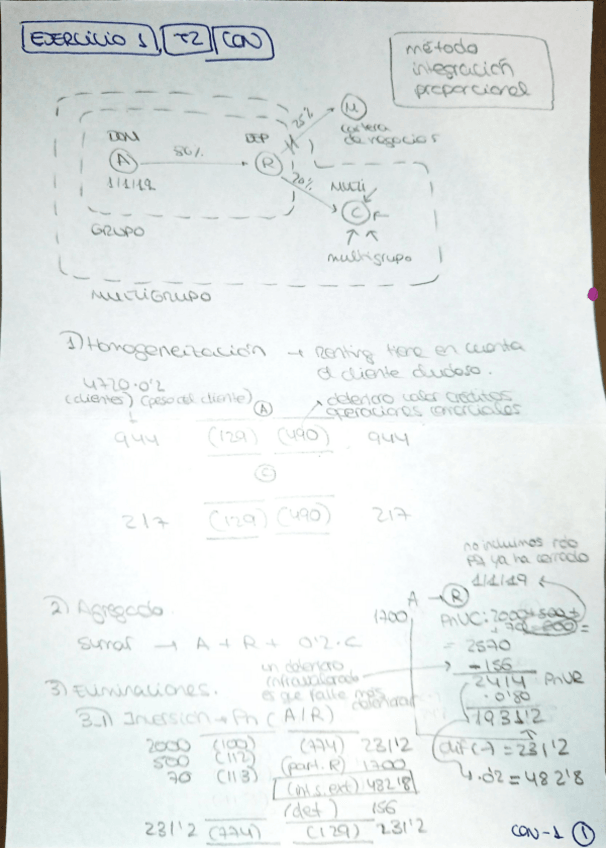 EJERCICIO 1, T2 CON
método
integración
proporcional
DOM
A
1/1/19
80%
DEP
R
25%
M
cartera
de negocios
20%
MULTI
C
multigrupo
GRUPO
MULTIGRUPO
1) Homogeneización → Renting tiene en cuenta
el cliente dudoso.
4720·0'2
(clientes) (peso del cliente)
deterioro valor créditos
operaciones comerciales
A
944 (129) (490) 944
C
217 (129) (490) 217
no incluimos rdo
pq ya ha cerrado
1/1/19
2) Agregado.
sumar → A + R + 0'2·C
A → R
1700
PnUC: 2000+500+
+70
= 2570
- 156
2414
· 0'80
1931'2
dif (-) = 231'2
· 0'2 = 482'8
un deterioro
infravalorado
es que falte más
deteriorar
3) Eliminaciones.
3.1) Inversión → Pn (A/R)
2000 (100) (774) 231'2
500 (112) (part. R) 1700
70 (113) (int s. ext) 482'8
(det) 156
231'2 (774) (129) 231'2
CON-1 1